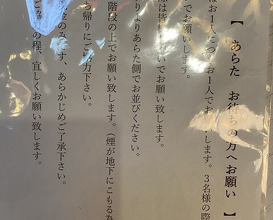 【 あらた お待ちの方へお願い 】
は お1人ずつ、お1人で します。3名様の際
でお願いします。
は皆 いでお願い致します。
りよりあらた側でお並びください。
階段の上でお願い致します。（煙が地下にこもるみ
ち帰りにご 力下さい。
金のみです、あらかじめご了承下さい。
の程、宜しくお願い致します。